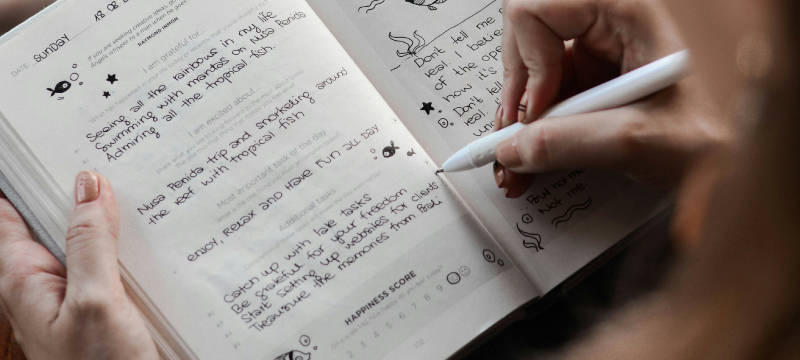 DATE: SUNDAY 18 08
If you are seeking creative ideas, go
Angels whisper to a man when he goes
RAYMOND INMON
I am grateful for...
Seeing all the rainbows in my life
Swimming with mantas on Nusa Penida
Admiring all the tropical fish.
I am excited about...
Nusa Penida trip and snorkeling around
the reef with tropical fish
Most important task of the day
enjoy, Relax and Have Fun ALL DAY
Additional tasks
Catch up with late tasks
Be grateful for your freedom
Start setting up websites for clients
Treasure the memories from Bali
HAPPINESS SCORE
2 3 4 5 6 7 8 9
Don't tell me
real. I believe
of the ope
how it's
Don't tell
real.
Not me.